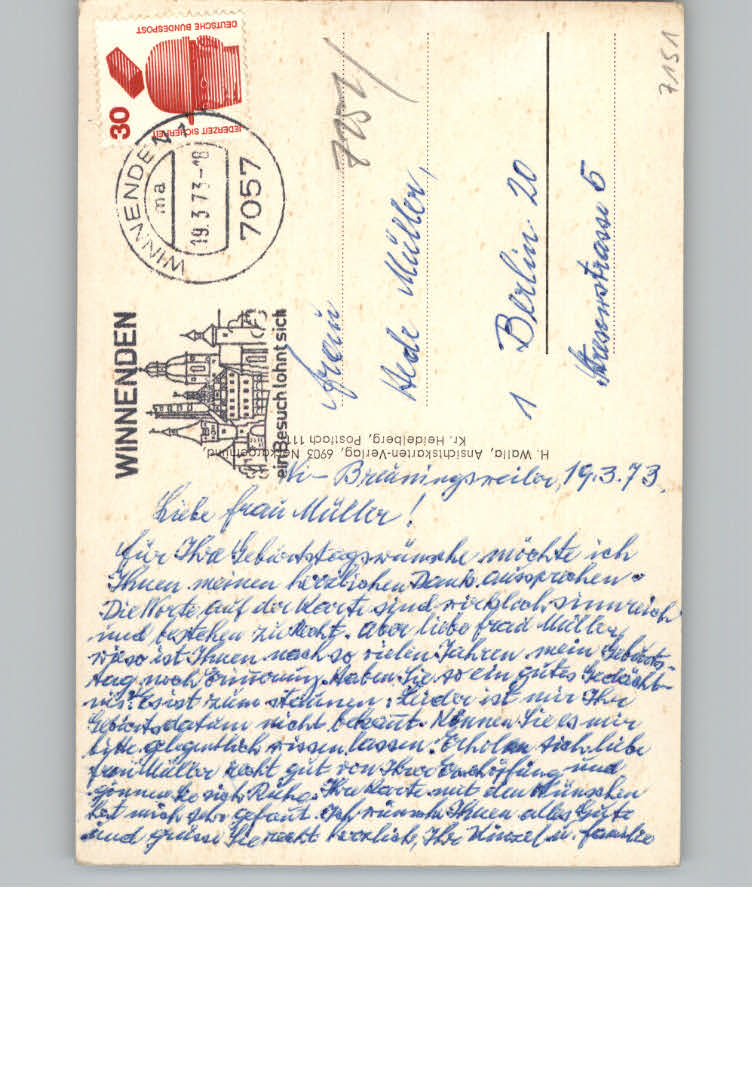 DEUTSCHE BUNDESPOST
JEDERZEIT SICHERHEIT
30
WINNENDEN
ma
19.3.73-18
7057
WINNENDEN
ein Besuch lohnt sich
7151
7151
Frau
Hede Müller,
1 Berlin 20
Stresowstrasse 5
H. Walla, Ansichtskarten-Verlag, 6903 Neckargemünd,
Kr. Heidelberg, Postfach 11
Wi-Breuningsweiler, 19.3.73.
Liebe Frau Müller!
für Ihre Geburtstagswünsche möchte ich
Ihnen meinen herzlichen Dank aussprechen.
Die Worte auf der Karte sind wirklich sinnreich
und bestehen zu Recht. Aber liebe Frau Müller
wieso ist Ihnen nach so vielen Jahren mein Geburts-
tag noch Erinnerung. Haben Sie so ein gutes Gedächt-
nis? Es ist zum staunen! Leider ist mir Ihr
Geburtsdatum nicht bekannt. Können Sie es mir
bitte gelegentlich wissen lassen. Erholen sich liebe
Frau Müller recht gut von Ihrer Erschöpfung und
gönnen Sie sich Ruhe. Ihre Karte mit den Wünschen
hat mich sehr gefreut. Ich wünsche Ihnen alles Gute
und grüsse Sie recht herzlich, Ihr Künzel u. Familie